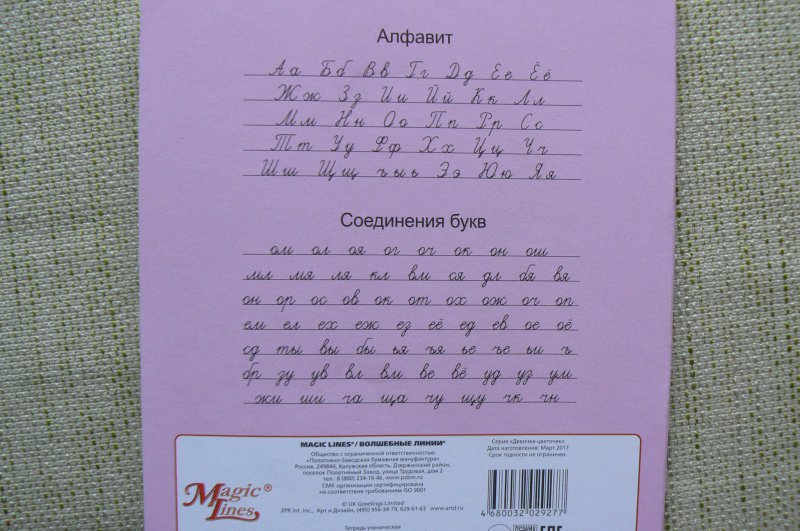 Алфавит
Аа Бб Вв Гг Дд Ее Ёё
Жж Зз Ии Йй Кк Лл
Мм Нн Оо Пп Рр Сс
Тт Уу Фф Хх Цц Чч
Шш Щщ ъыь Ээ Юю Яя
Соединения букв
ом ол оя ог оч ок он ош
мл мя ля кл вм ся дл бя вя
он ор ос ов ок от ох ож оч оп
ем ел ех еж ез её ед ев ое оё
од ты вы бы ья ъя ье ъе ьи ъ
бр зу ув вл вм ве вё уд уз ум
жи ши ча ща чу щу чк чн
MAGIC LINES®/ВОЛШЕБНЫЕ ЛИНИИ®
Общество с ограниченной ответственностью
«Полотняно-Заводская бумажная мануфактура»
Россия, 249844, Калужская область, Дзержинский район,
поселок Полотняный Завод, улица Трудовая, дом 2
тел.: 8 (800) 234-16-46, www.pzbm.ru
СМК организации сертифицирована
на соответствие требованиям ISO 9001
© UK Greetings Limited
ZPR Int. Inc., Арт и Дизайн, (495) 956-34-79, 629-61-63 www.artd.ru
Тетрадь ученическая
Magic Lines®
Серия «Девочка-цветочек»
Дата изготовления: Март 2017
Срок годности не ограничен.
4 680032 029277